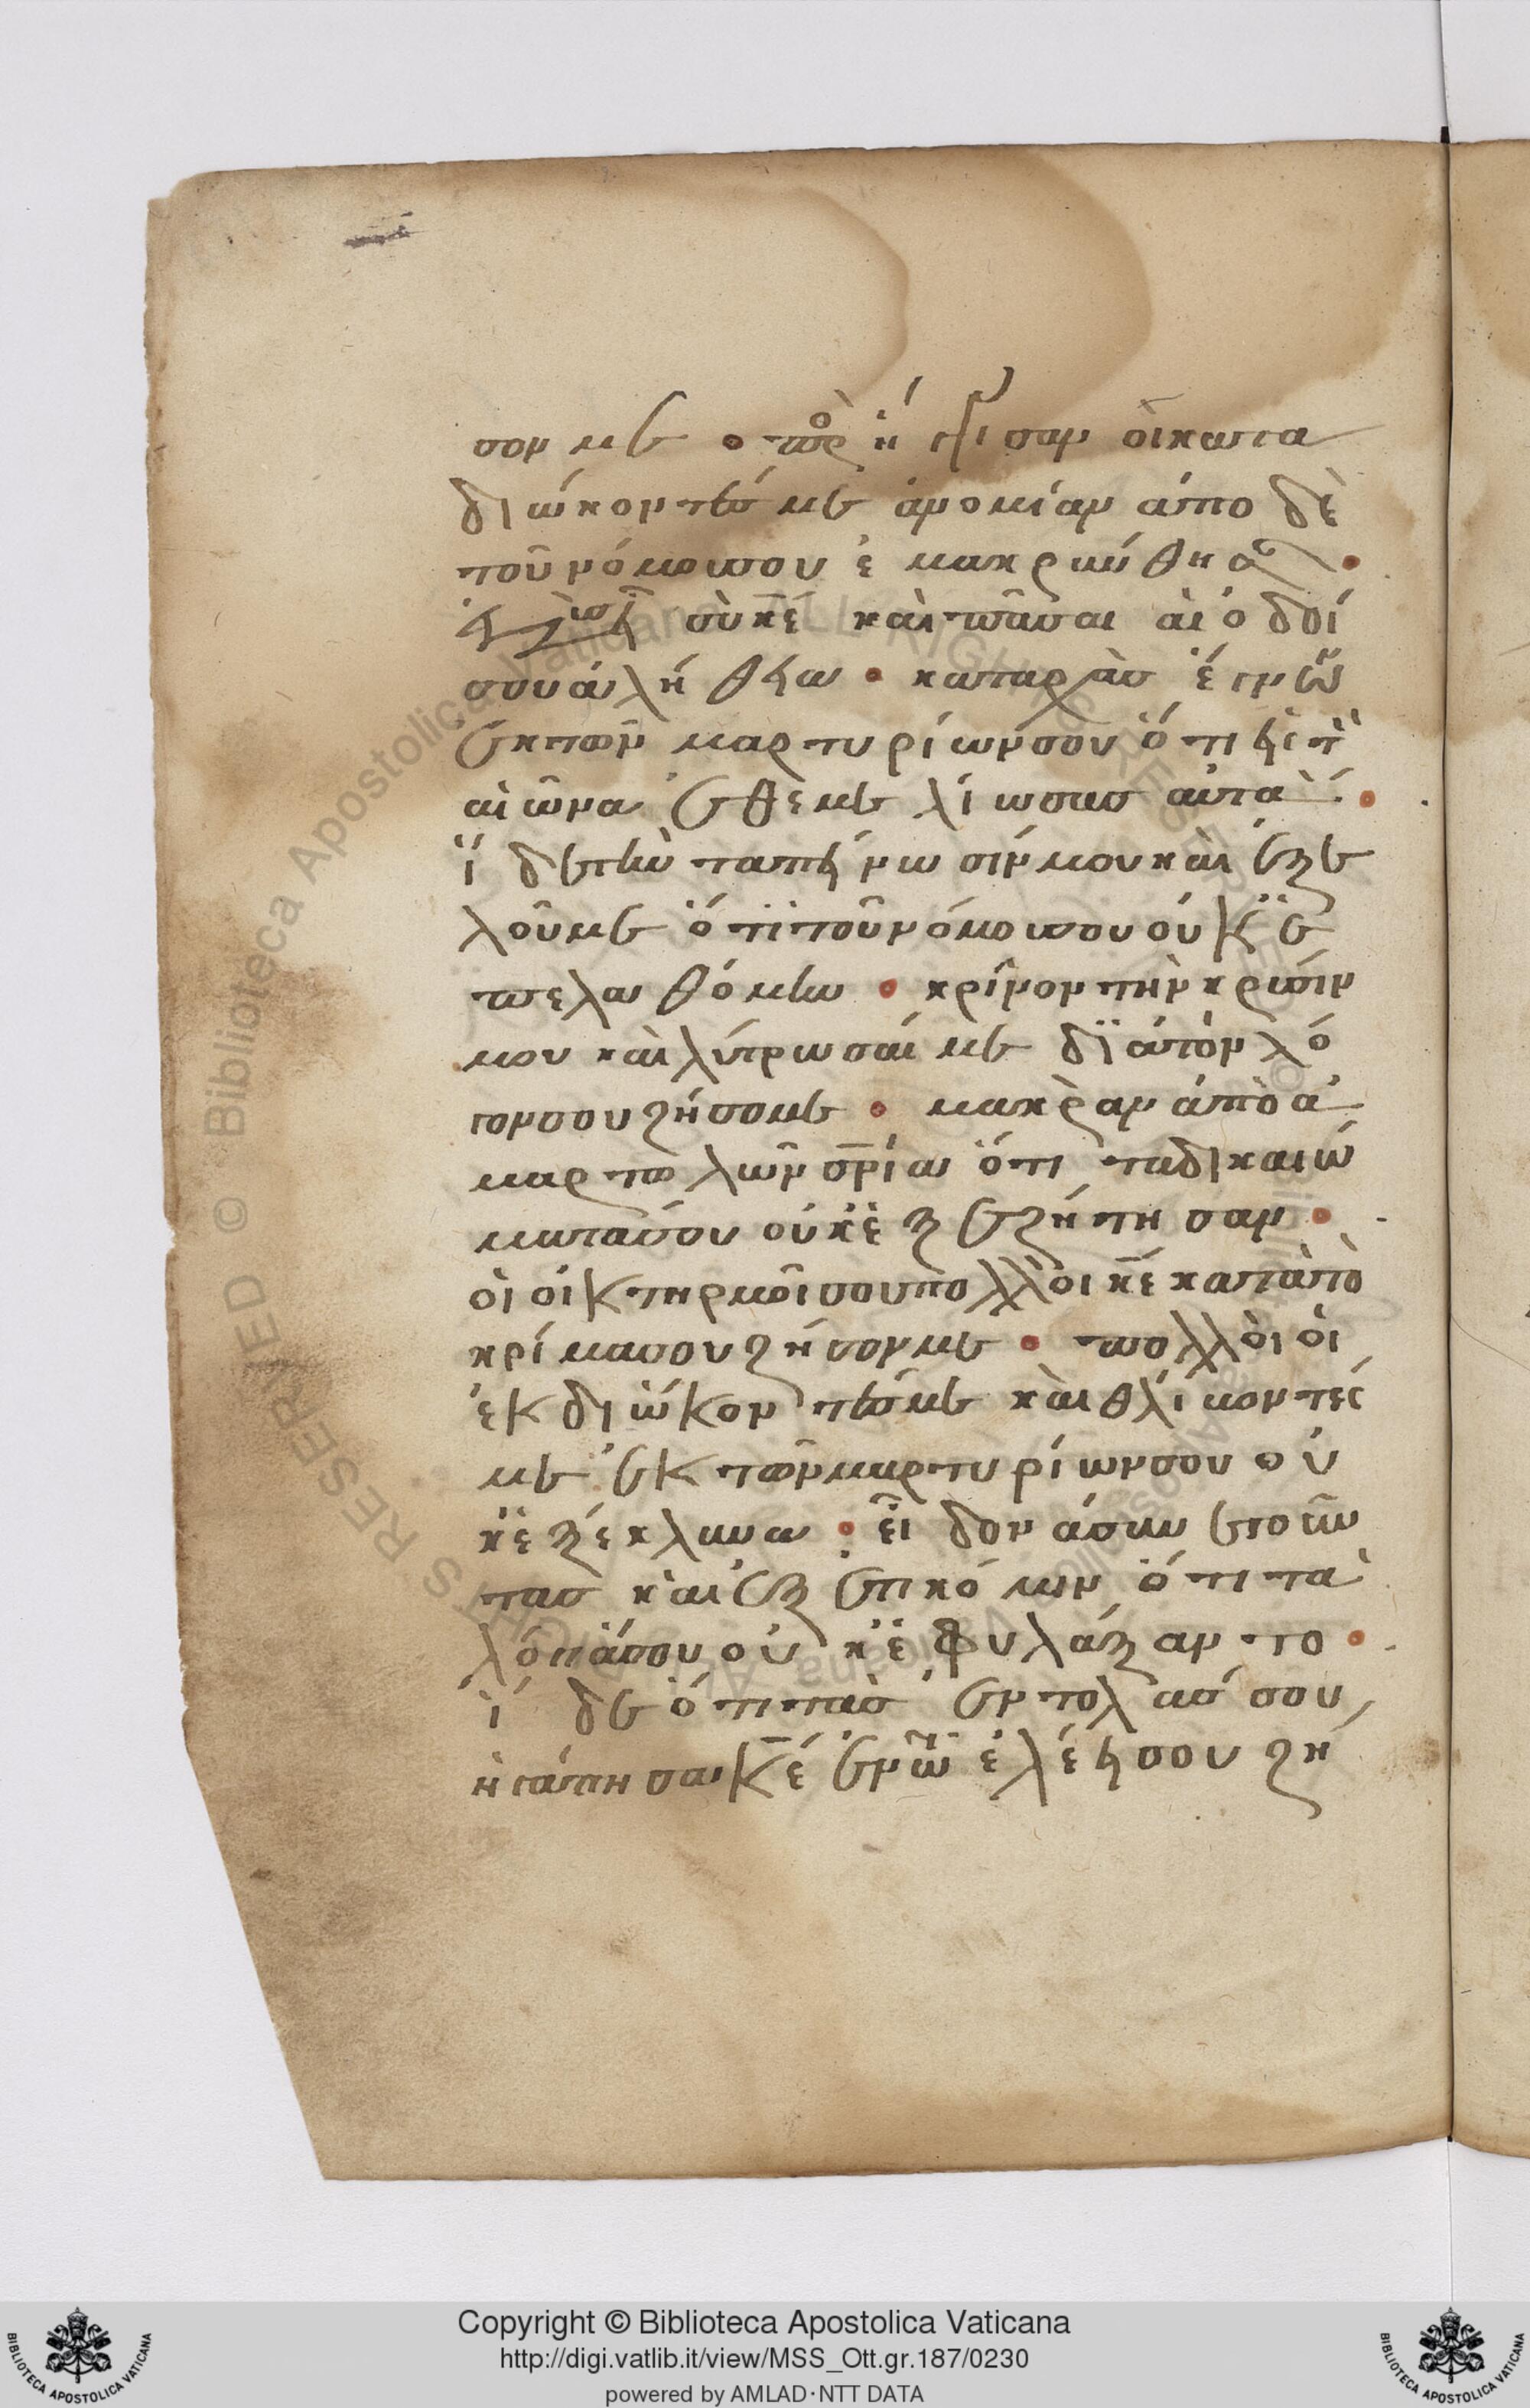 σον με • προσήγγισαν οἱ κατα
διώκοντές με ἀνομίαν ἀπο δὲ
τοῦ νόμου σου ἐμακρύνθησαν •
ἐγγὺς εἶ σὺ κ̅ε̅ καὶ πᾶσαι αἱ ὁδοί
σου ἀλήθεια • καταρχὰς ἔγνων
ἐκ τῶν μαρτυρίων σου ὅτι εἰς τὸν
αἰῶνα ἐθεμελίωσας αὐτά •
ἴδε τὴν ταπείνωσίν μου καὶ ἐξε
λοῦ με ὅτι τοῦ νόμου σου οὐκ ἐ
πελαθόμην • κρῖνον τὴν κρίσιν
μου καὶ λύτρωσαί με διά τὸν λό
γον σου ζήσομε • μακρὰν ἀπὸ ἁ
μαρτωλῶν σ̅ρ̅ία ὅτι τα δικαιώ
ματα σου οὐκ ἐξεζήτησαν •
οἱ οἰκτηρμοί σου πολλοὶ κ̅ε̅ κατὰ τὸ
κρίμα σου ζήσον με • πολλοὶ οἱ
ἐκδιώκοντές με καὶ θλίβοντές
με ἐκ τῶν μαρτυρίων σου οὐ
κ ἐξέκλινα • εἶδον ἀσυνετοῦν
τας καὶ ἐξετικόμην ὅτι τὰ
λόγιά σου οὐκ ἐφυλάξαντο •
ἴδε ὅτι τὰς ἐντολάς σου
ἠγάπησα κ̅ε̅ ἐν τῶ ἐλέει σου ζῆ
Copyright © Biblioteca Apostolica Vaticana
http://digi.vatlib.it/view/MSS_Ott.gr.187/0230
powered by AMLAD·NTT DATA